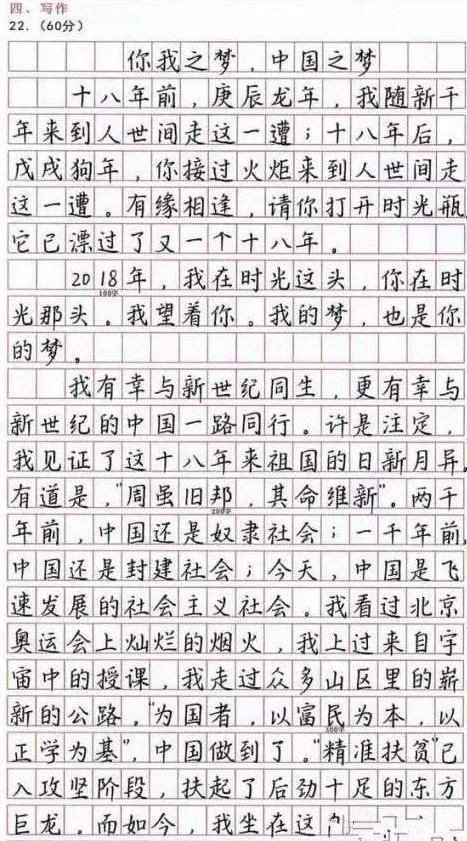 四、写作
22.（60分）
你我之梦，中国之梦
十八年前，庚辰龙年，我随新千
年来到人世间走这一遭；十八年后，
戊戌狗年，你接过火炬来到人世间走
这一遭。有缘相逢，请你打开时光瓶
它已漂过了又一个十八年。
2018年，我在时光这头，你在时
100字
光那头。我望着你。我的梦，也是你
的梦。
我有幸与新世纪同生，更有幸与
新世纪的中国一路同行。许是注定，
我见证了这十八年来祖国的日新月异，
有道是，“周虽旧邦，其命维新”。两千
200字
年前，中国还是奴隶社会；一千年前，
中国还是封建社会；今天，中国是飞
速发展的社会主义社会。我看过北京
奥运会上灿烂的烟火，我上过来自宇
宙中的授课，我走过众多山区里的崭
新的公路。“为国者，以富民为本，以
300字
正学为基”，中国做到了。“精准扶贫”已
入攻坚阶段，扶起了后劲十足的东方
巨龙。而如今，我坐在这